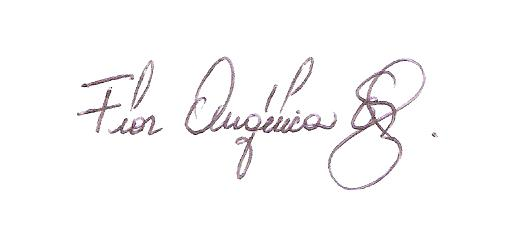 Flor Angélica